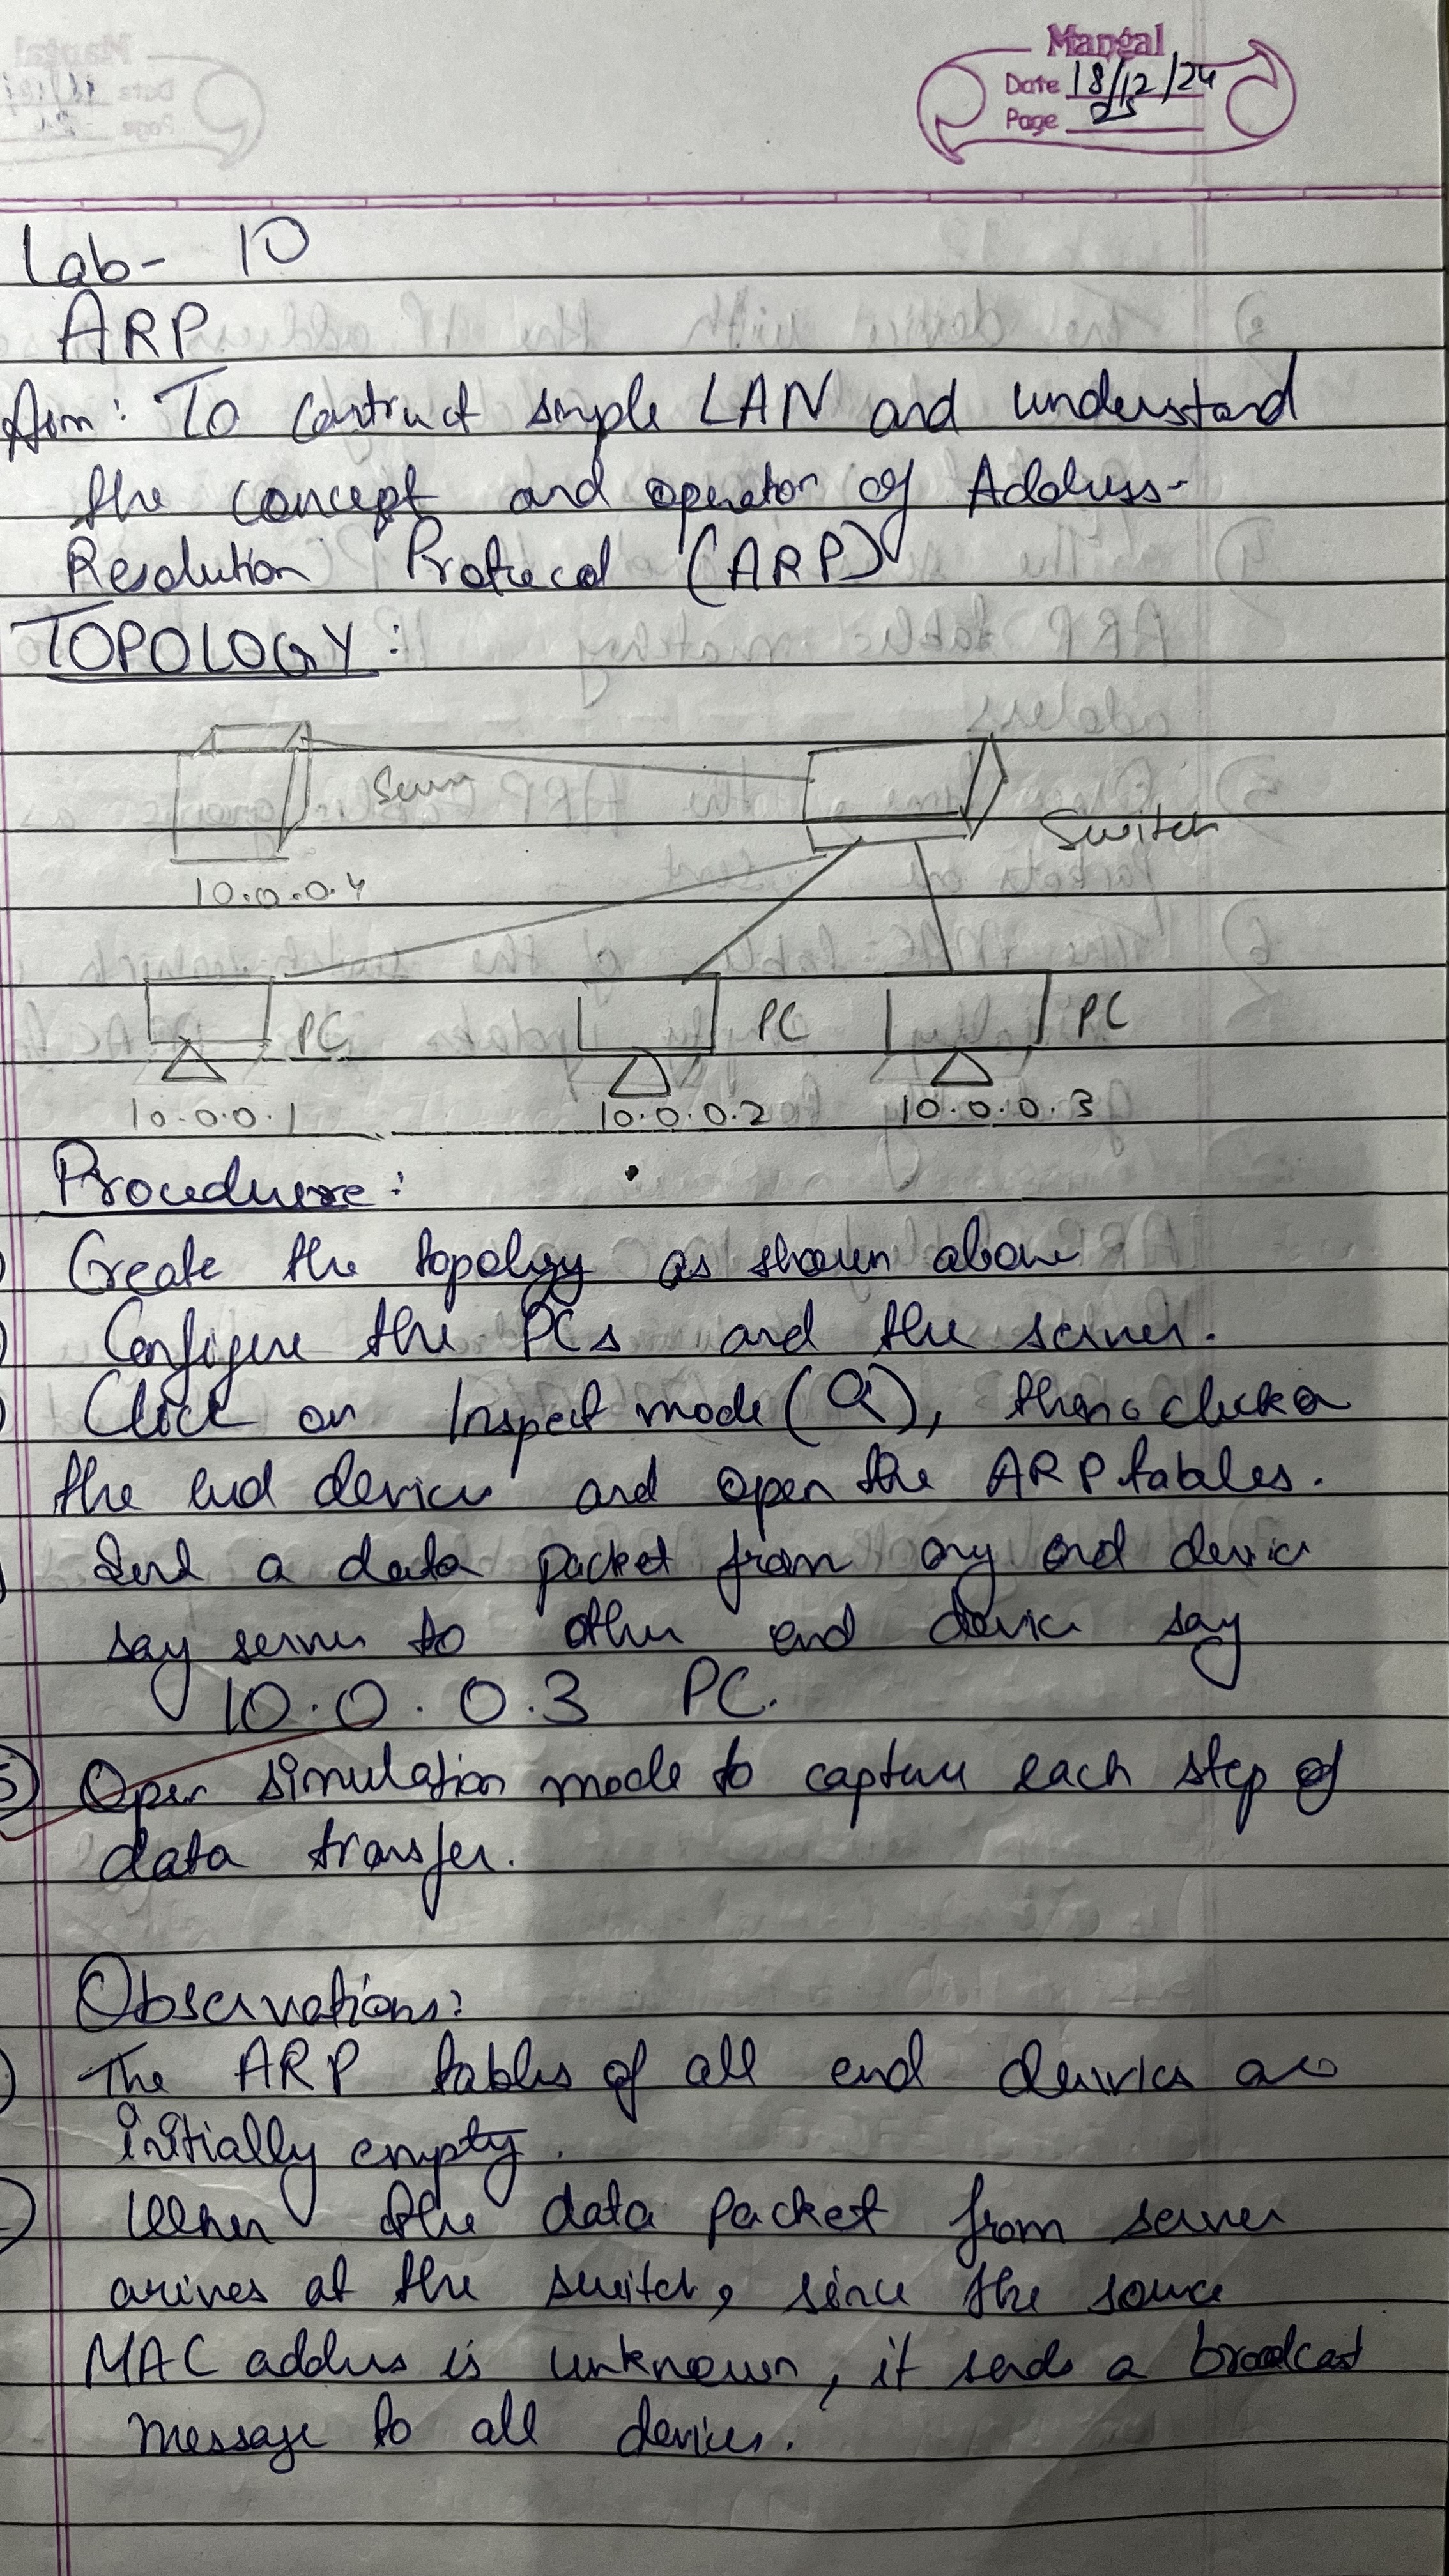 Mangal
Date 18/12/24
Page 25
Lab- 10
ARP
Aim: To contruct simple LAN and understand
the concept and operator of Address-
Resolution Protocol (ARP)
TOPOLOGY:
Switch
10.0.0.4
PC PC PC
10.0.0.1 10.0.0.2 10.0.0.3
Procedure:
Create the topology as shown above
Configure the PCs and the server.
Click on Inspect mode (Q), then click on
the end device and open the ARP tables.
Send a data packet from any end device
say server to other end device say
10.0.0.3 PC.
5) Open simulation mode to capture each step of
data transfer.
Observations:
The ARP tables of all end devices are
initially empty.
When the data packet from server
arives at the switch, since the source
MAC address is unknown, it sends a broadcast
message to all devices.